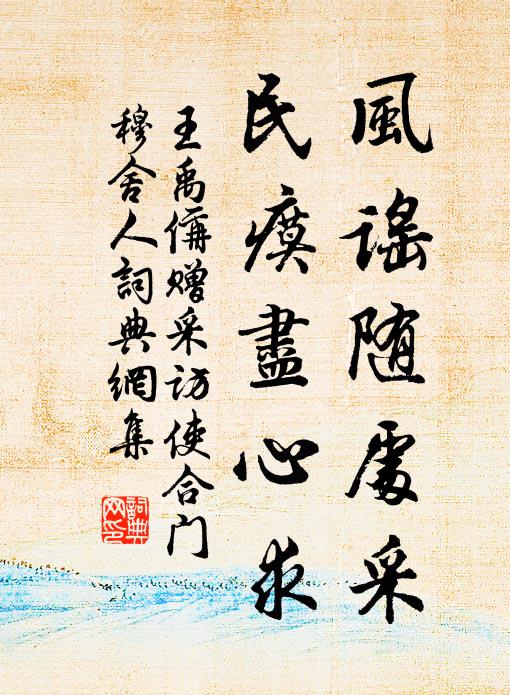 風謡随處采
民瘼盡心求
王禹偁赠采访使合门
穆舍人詞典網集
詞典网印